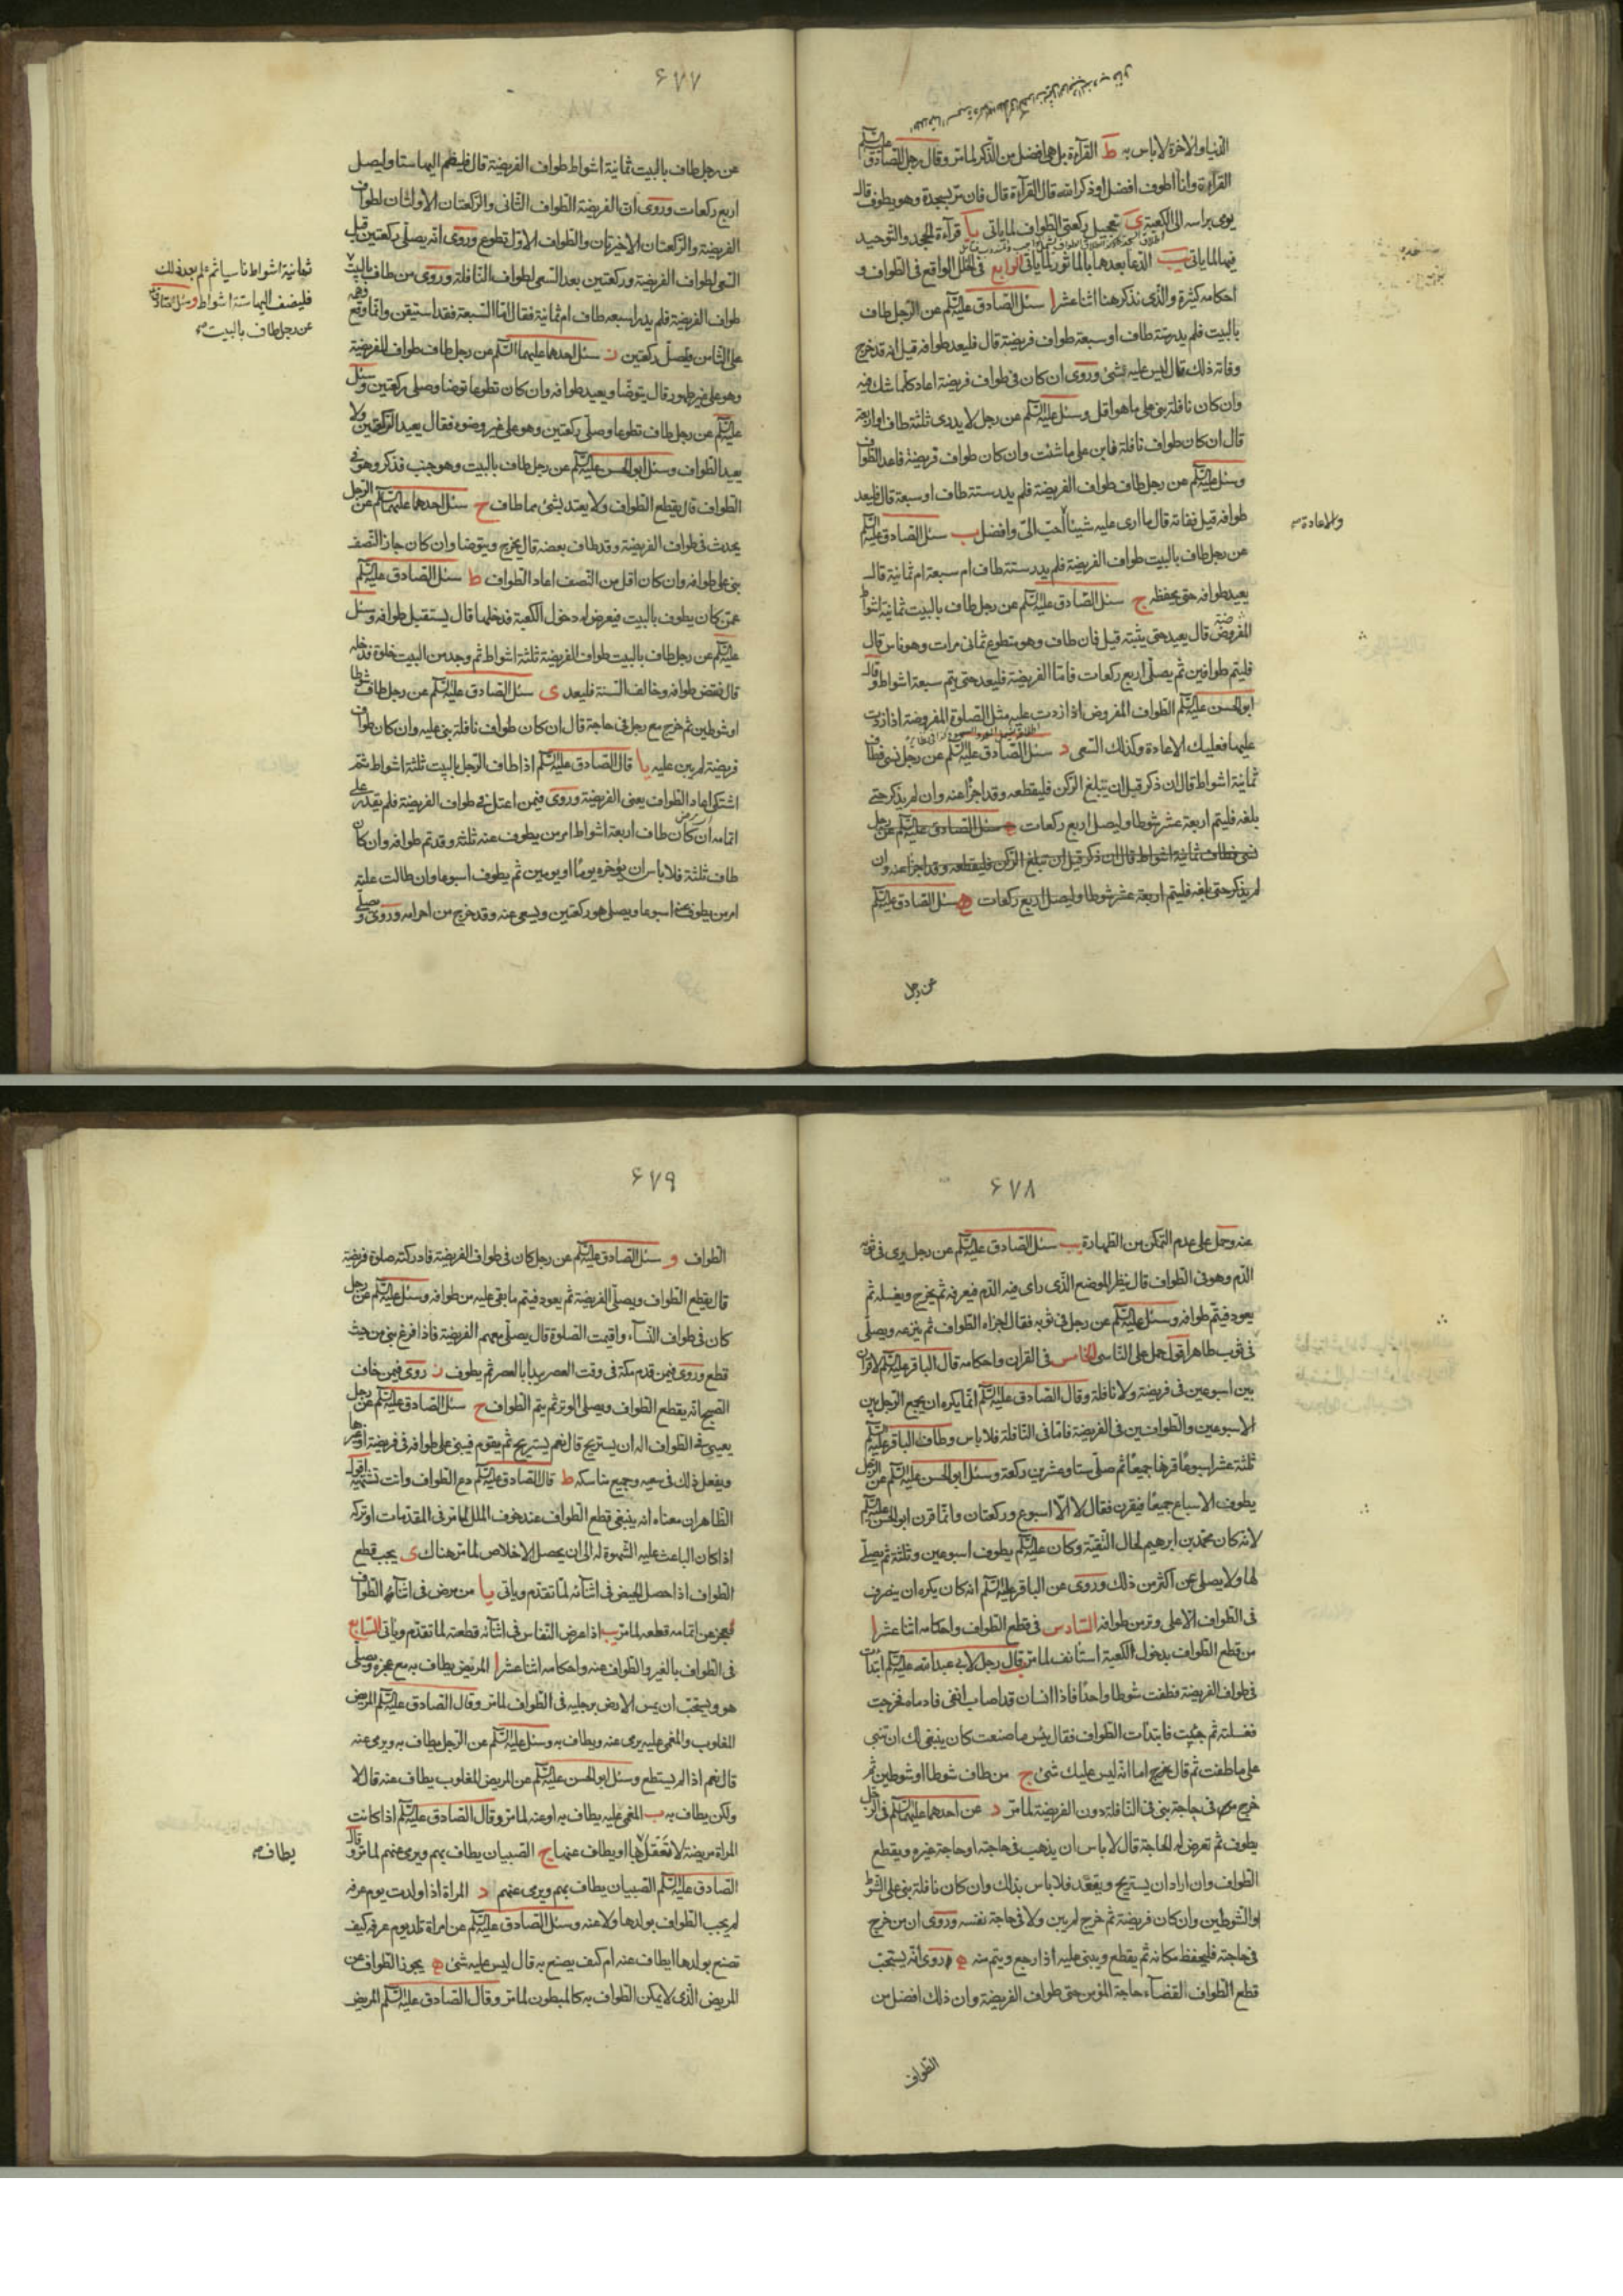 الدنيا والآخرة لا باس به ط القرآءة بل هى افضل من الذكر لما مر وقال رجل للصادق عليه السلم
القرآءة وانا اطوف افضل او ذكر الله قال القرآءة قال فان مر بسجدة وهو يطوف قال
يومى براسه الى الكعبة ى تعجيل ركعتى الطواف لما ياتى يا قرآءة الجحد والتوحيد
فيهما لما ياتى يب الدعا بعدهما بالماثور لما ياتى الرابع فى الخلل الواقع فى الطواف و
احكامه كثيرة والذى نذكر هنا اثنا عشر ا سئل الصادق عليه السلم عن الرجل طاف
بالبيت فلم يدر ستة طاف او سبعة طواف فريضة قال فليعد طوافه قيل انه قد خرج
وفاته ذلك قال ليس عليه شئ وروى ان كان فى طواف فريضة اعاد كلما شك فيه
وان كان نافلة بنى على ما هو اقل وسئل عليه السلم عن رجل لا يدرى ثلثة طاف او اربعة
قال ان كان طواف نافلة فابن على ما شئت وان كان طواف فريضة فاعد الطواف
وسئل عليه السلم عن رجل طاف طواف الفريضة فلم يدر ستة طاف او سبعة قال فليعد
طوافه قيل ففاته قال ما ارى عليه شيئا احب الى وافضل ب سئل الصادق عليه السلم
والاعادة
عن رجل طاف بالبيت طواف الفريضة فلم يدر ستة طاف ام سبعة ام ثمانية قال
يعيد طوافه حتى يحفظ ج سئل الصادق عليه السلم عن رجل طاف بالبيت ثمانية اشواط
المفروض قال يعيد حتى يثبته قيل فان طاف وهو متطوع ثمانى مرات وهو ناس قال
فليتم طوافين ثم يصلى اربع ركعات فاما الفريضة فليعد حتى يتم سبعة اشواط وقال
ابو الحسن عليه السلم الطواف المفروض اذا زدت عليه مثل الصلوة المفروضة اذا زدت
عليها فعليك الاعادة وكذلك السعى د سئل الصادق عليه السلم عن رجل نسى فطاف
ثمانية اشواط قال ان ذكر قبل ان يبلغ الركن فليقطعه وقد اجزأ عنه وان لم يذكر حتى
بلغه فليتم اربعة عشر شوطا وليصل اربع ركعات ه سئل الصادق عليه السلم عن رجل
نسى فطاف ثمانية اشواط قال ان ذكر قبل ان تبلغ الركن فليقطعه وقد اجزأ عنه وان
لم يذكر حتى بلغه فليتم اربعة عشر شوطا وليصل اربع ركعات ه سئل الصادق عليه السلم
عن رجل
۶۷۷
عن رجل طاف بالبيت ثمانية اشواط طواف الفريضة قال فليضم اليها ستا وليصل
اربع ركعات وروى ان الفريضة الطواف الثانى والركعتان الاولتان لطواف
الفريضة والركعتان الاخيرتان والطواف الاول تطوع وروى انه يصلى ركعتين قبل
السعى لطواف الفريضة وركعتين بعد السعى لطواف النافلة وروى من طاف بالبيت
ثمانية اشواط ناسيا ثم علم بعد ذلك
فليضف اليها ستة اشواط وسئل الصادق
عن رجل طاف بالبيت
طواف الفريضة فلم يدر اسبعة طاف ام ثمانية فقال اما السبعة فقد استيقن وانما وقع وهمه
على الثامن فليصل ركعتين ز سئل احدهما عليهما السلم عن رجل طاف طواف الفريضة
وهو على غير طهور قال يتوضا ويعيد طوافه وان كان تطوعا توضا وصلى ركعتين وسئل
عليه السلم عن رجل طاف تطوعا وصلى ركعتين وهو على غير وضوء فقال يعيد الركعتين ولا
يعيد الطواف وسئل ابو الحسن عليه السلم عن رجل طاف بالبيت وهو جنب فذكر وهو فى
الطواف قال يقطع الطواف ولا يعتد بشئ مما طاف ح سئل احدهما عليهما السلم عن الرجل
يحدث فى طواف الفريضة وقد طاف بعضه قال يخرج ويتوضا وان كان جاز النصف
بنى على طوافه وان كان اقل من النصف اعاد الطواف ط سئل الصادق عليه السلم
عمن كان يطوف بالبيت فيعرض له دخول الكعبة فدخلها قال يستقبل طوافه وسئل
عليه السلم عن رجل طاف بالبيت طواف الفريضة ثلثة اشواط ثم وجد من البيت خلوة فدخله
قال نقض طوافه وخالف السنة فليعد ى سئل الصادق عليه السلم عن رجل طاف شوطا
او شوطين ثم خرج مع رجل فى حاجة قال ان كان طواف نافلة بنى عليه وان كان طواف
فريضة لم يبن عليه يا قال الصادق عليه السلم اذا طاف الرجل بالبيت ثلثة اشواط ثم
اشتكى اعاد الطواف يعنى الفريضة وروى فيمن اعتل فى طواف الفريضة فلم يقدر على
اتمامه ان كان طاف اربعة اشواط امر من يطوف عنه ثلثة وقد تم طوافه وان كان
طاف ثلثة فلا باس ان يؤخره يوما او يومين ثم يطوف اسبوعا وان طالت علته
امر من يطوف عنه اسبوعا ويصلى هو ركعتين ويسعى عنه وقد خرج من احرامه وروى ويصلى
۶۷۸
عنه وحمل على عدم التمكن من الطهارة يب سئل الصادق عليه السلم عن رجل يرى فى ثوبه
الدم وهو فى الطواف قال ينظر الموضع الذى راى فيه الدم فيعرفه ثم يخرج ويغسله ثم
يعود فيتم طوافه وسئل عليه السلم عن رجل فى ثوبه فقال اجزاء الطواف ثم ينزعه ويصلى
فى ثوب طاهر اقول حمل على الناسى الخامس فى القران واحكامه قال الباقر عليه السلم لا قران
بين اسبوعين فى فريضة ولا نافلة وقال الصادق عليه السلم انما يكره ان يجمع الرجل بين
الاسبوعين والطوافين فى الفريضة فاما فى النافلة فلا باس وطاف الباقر عليه السلم
ثلثة عشر اسبوعا قرنها جميعا ثم صلى ستا وعشرين ركعة وسئل ابو الحسن عليه السلم عن الرجل
يطوف الاسباع جميعا فيقرن فقال لا الا اسبوع وركعتان وانما قرن ابو الحسن عليه السلم
لانه كان محمد بن ابرهيم لحال التقية وكان عليه السلم يطوف اسبوعين وثلثة ثم يصلى
لها ولا يصلى عن اكثر من ذلك وروى عن الباقر عليه السلم انه كان يكره ان ينصرف
فى الطواف الا على وتر من طوافه السادس فى قطع الطواف واحكامه اثنا عشر ا
من قطع الطواف بدخول الكعبة استانف لما مر قال رجل لابى عبدالله عليه السلم ابتدات
فى طواف الفريضة فطفت شوطا واحدا فاذا انسان قد اصاب انفى فادماه فخرجت
فغسلته ثم جئت فابتدات الطواف فقال بئس ما صنعت كان ينبغى لك ان تبنى
على ما طفت ثم قال اما انه ليس عليك شئ ج من طاف شوطا او شوطين ثم
خرج فى حاجة بنى فى النافلة دون الفريضة لما مر د عن احدهما عليهما السلم فى الرجل
يطوف ثم تعرض له الحاجة قال لا باس ان يذهب فى حاجته او حاجة غيره ويقطع
الطواف وان اراد ان يستريح ويقعد فلا باس بذلك وان كان نافلة بنى على الشوط
او الشوطين وان كان فريضة ثم خرج لم يبن ولا فى حاجة نفسه وروى ان من خرج
فى حاجته فليحفظ مكانه ثم يقطع ويبنى عليه اذا رجع ويتم منه ه وروى انه يستحب
قطع الطواف لقضآء حاجة المؤمن حتى طواف الفريضة وان ذلك افضل من
الطواف
۶۷۹
الطواف و سئل الصادق عليه السلم عن رجل كان فى طواف الفريضة فادركته صلوة فريضة
قال يقطع الطواف ويصلى الفريضة ثم يعود فيتم ما بقى عليه من طوافه وسئل عليه السلم عن رجل
كان فى طواف النسآء واقيمت الصلوة قال يصلى معهم الفريضة فاذا فرغ بنى من حيث
قطع وروى فيمن قدم مكة فى وقت العصر يبدا بالعصر ثم يطوف ز روى فيمن خاف
الصبح انه يقطع الطواف ويصلى الوتر ثم يتم الطواف ح سئل الصادق عليه السلم عن رجل
يعيى فى الطواف اله ان يستريح قال نعم يستريح ثم يقوم فيبنى على طوافه فى فريضة او غيرها
ويفعل ذلك فى سعيه وجميع مناسكه ط قال الصادق عليه السلم دع الطواف وانت تشتهيه اقول
الظاهر ان معناه انه ينبغى قطع الطواف عند خوف الملل لما مر فى المقدمات او تركه
اذا كان الباعث عليه الشهوة له الى ان يحصل الاخلاص لما مر هناك ى يجب قطع
الطواف اذا حصل الحيض فى اثنآئه لما تقدم وياتى يا من مرض فى اثنآء الطواف
فعجز عن اتمامه قطعه لما مر يب اذا عرض النفاس فى اثنآئه قطعته لما تقدم وياتى السابع
فى الطواف بالغير والطواف عنه واحكامه اثنا عشر ا المريض يطاف به مع عجزه ويصلى
هو ويستحب ان يمس الارض برجليه فى الطواف لما مر وقال الصادق عليه السلم المريض
المغلوب والمغمى عليه يرمى عنه ويطاف به وسئل عليه السلم عن الرجل يطاف به ويرمى عنه
قال نعم اذا لم يستطع وسئل ابو الحسن عليه السلم عن المريض المغلوب يطاف عنه قال لا
ولكن يطاف به ب المغمى عليه يطاف به او عنه لما مر وقال الصادق عليه السلم اذا كانت
المراة مريضة لا تعقل بها او يطاف عنها ج الصبيان يطاف بهم ويرمى عنهم لما مر وقال
يطاف
الصادق عليه السلم الصبيان يطاف بهم ويرمى عنهم د المراة اذا ولدت يوم عرفة
لم يجب الطواف بولدها ولا عنه وسئل الصادق عليه السلم عن امراة تلد يوم عرفة كيف
تصنع بولدها ايطاف عنه ام كيف يصنع به قال ليس عليه شئ ه يجوز الطواف عن
المريض الذى لا يمكن الطواف به كالمبطون لما مر وقال الصادق عليه السلم المريض